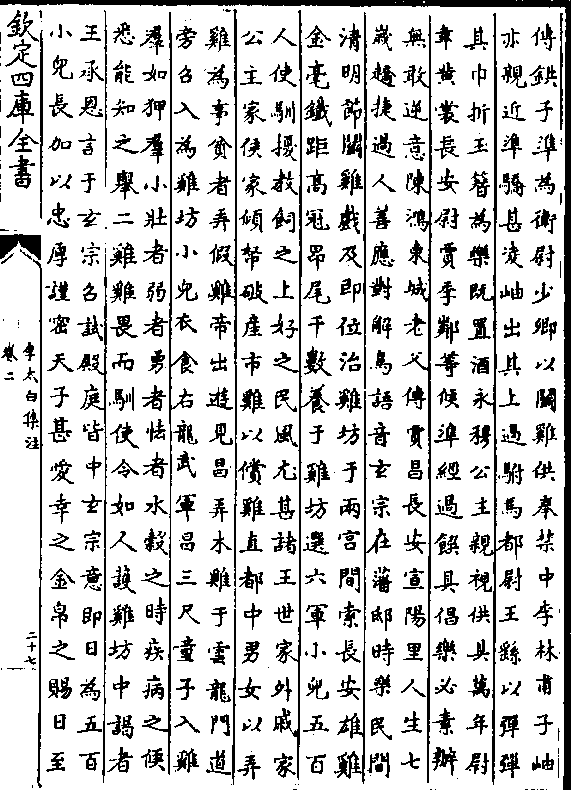 傳鉷子準為衛尉少卿以鬭雞供奉禁中李林甫子岫
亦親近準驕甚凌岫出其上過駙馬都尉王繇以彈彈
其巾折玉簪為樂既置酒永穆公主親視供具萬年尉
韋黃裳長安尉賈季鄰等候準經過饌具倡樂必素辦
無敢逆意陳鴻東城老父傳賈昌長安宣陽里人生七
嵗趫捷過人善應對解鳥語音玄宗在藩邸時樂民間
清明節鬭雞戲及即位治雞坊于兩宮間索長安雄雞
金毫鐵距高冠昂尾千數養于雞坊選六軍小兒五百
人使馴擾教飼之上好之民風尤甚諸王世家外戚家
公主家侯家傾帑破產市雞以償雞直都中男女以弄
雞為事貧者弄假雞帝出遊見昌弄木雞于雲龍門道
旁召入為雞坊小兒衣食右龍武軍昌三尺童子入雞
羣如狎羣小壯者弱者勇者怯者水穀之時疾病之候
悉能知之舉二雞雞畏而馴使令如人護雞坊中謁者
王承恩言于玄宗召試殿庭皆中玄宗意即日為五百
小兒長加以忠厚謹密天子甚愛幸之金帛之賜日至
欽定四庫全書
李太白集注
卷二
二十七